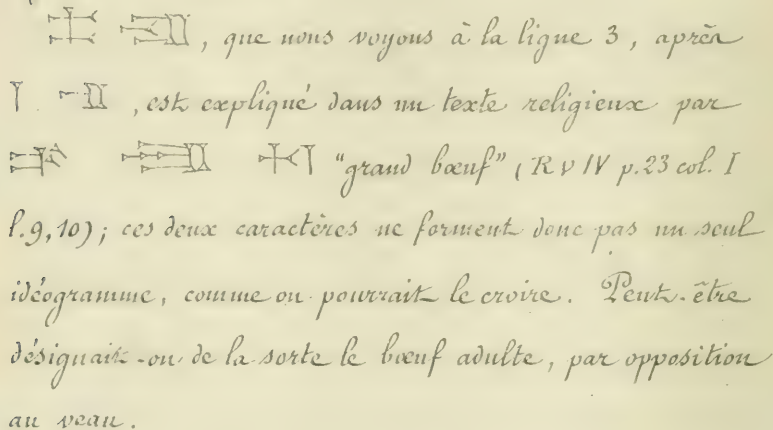 , que nous voyons à la ligne 3, après
, est expliqué dans un texte religieux par
"grand bœuf" (R V IV p. 23 col. I
l. 9, 10); ces deux caractères ne forment donc pas un seul
idéogramme, comme on pourrait le croire. Peut-être
désignait-on de la sorte le bœuf adulte, par opposition
au veau.